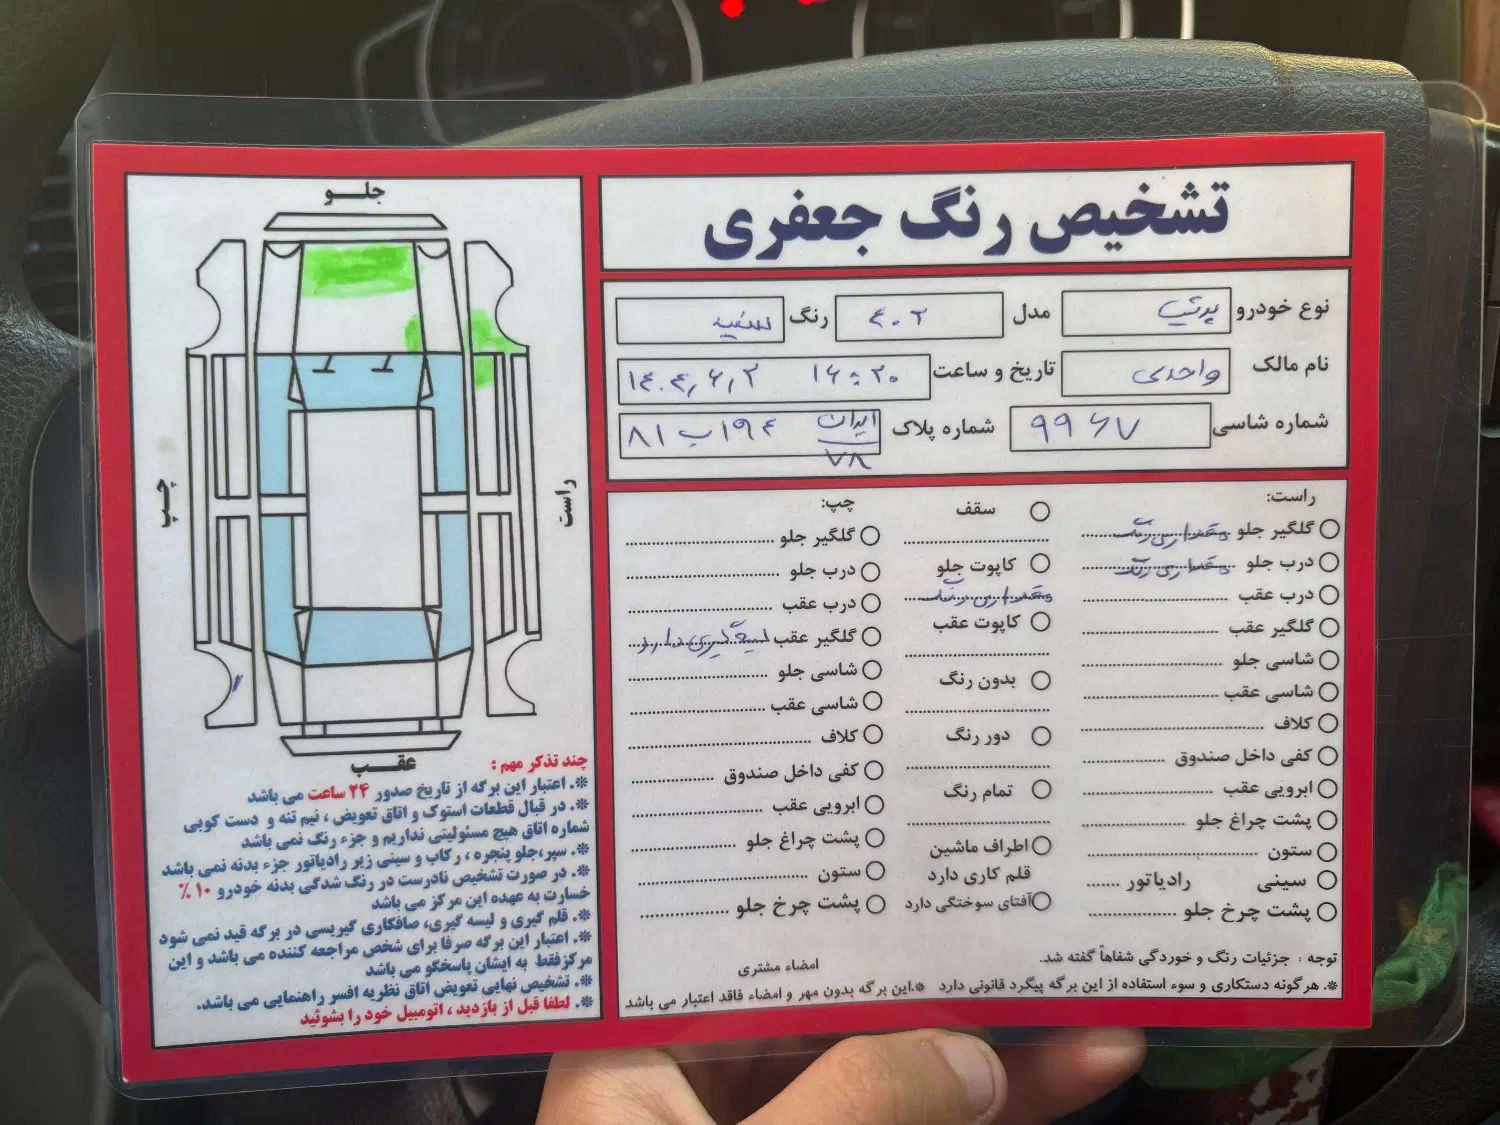 تشخیص رنگ جعفری
نوع خودرو
مدل ۴۰۲ رنگ سفید
نام مالک واحدی تاریخ و ساعت ۱۶:۲۰ ۱۴۰۴,۶,۲
شماره شاسی ۹۹۶۷ شماره پلاک ایران ۷۸ ۱۹۴ب ۸۱
راست:
گلگیر جلو مقداری رنگ
درب جلو مقداری رنگ
درب عقب
گلگیر عقب
شاسی جلو
شاسی عقب
کلاف
کفی داخل صندوق
ابرویی عقب
پشت چراغ جلو
ستون
سینی رادیاتور
پشت چرخ جلو
سقف
کاپوت جلو
مقداری رنگ
کاپوت عقب
بدون رنگ
دور رنگ
تمام رنگ
اطراف ماشین
قلم کاری دارد
آفتای سوختگی دارد
چپ:
گلگیر جلو
درب جلو
درب عقب
گلگیر عقب لیسه گیری دارد
شاسی جلو
شاسی عقب
کلاف
کفی داخل صندوق
ابرویی عقب
پشت چراغ جلو
ستون
پشت چرخ جلو
توجه : جزئیات رنگ و خوردگی شفاهاً گفته شد.
امضاء مشتری
*. هرگونه دستکاری و سوء استفاده از این برگه پیگرد قانونی دارد *.این برگه بدون مهر و امضاء فاقد اعتبار می باشد
جلو
چپ
راست
عقب
چند تذکر مهم :
*. اعتبار این برگه از تاریخ صدور ۲۴ ساعت می باشد
*. در قبال قطعات استوک و اتاق تعویض ، نیم تنه و دست کوبی
شماره اتاق هیچ مسئولیتی نداریم و جزء رنگ نمی باشد
*. سپر،جلو پنجره ، رکاب و سینی زیر رادیاتور جزء بدنه نمی باشد
*. در صورت تشخیص نادرست در رنگ شدگی بدنه خودرو ۱۰ %
خسارت به عهده این مرکز می باشد
*. قلم گیری و لیسه گیری، صافکاری گیریسی در برگه قید نمی شود
*. اعتبار این برگه صرفا برای شخص مراجعه کننده می باشد و این
مرکزفقط به ایشان پاسخگو می باشد
*. تشخیص نهایی تعویض اتاق نظریه افسر راهنمایی می باشد.
*. لطفا قبل از بازدید ، اتومبیل خود را بشوئید